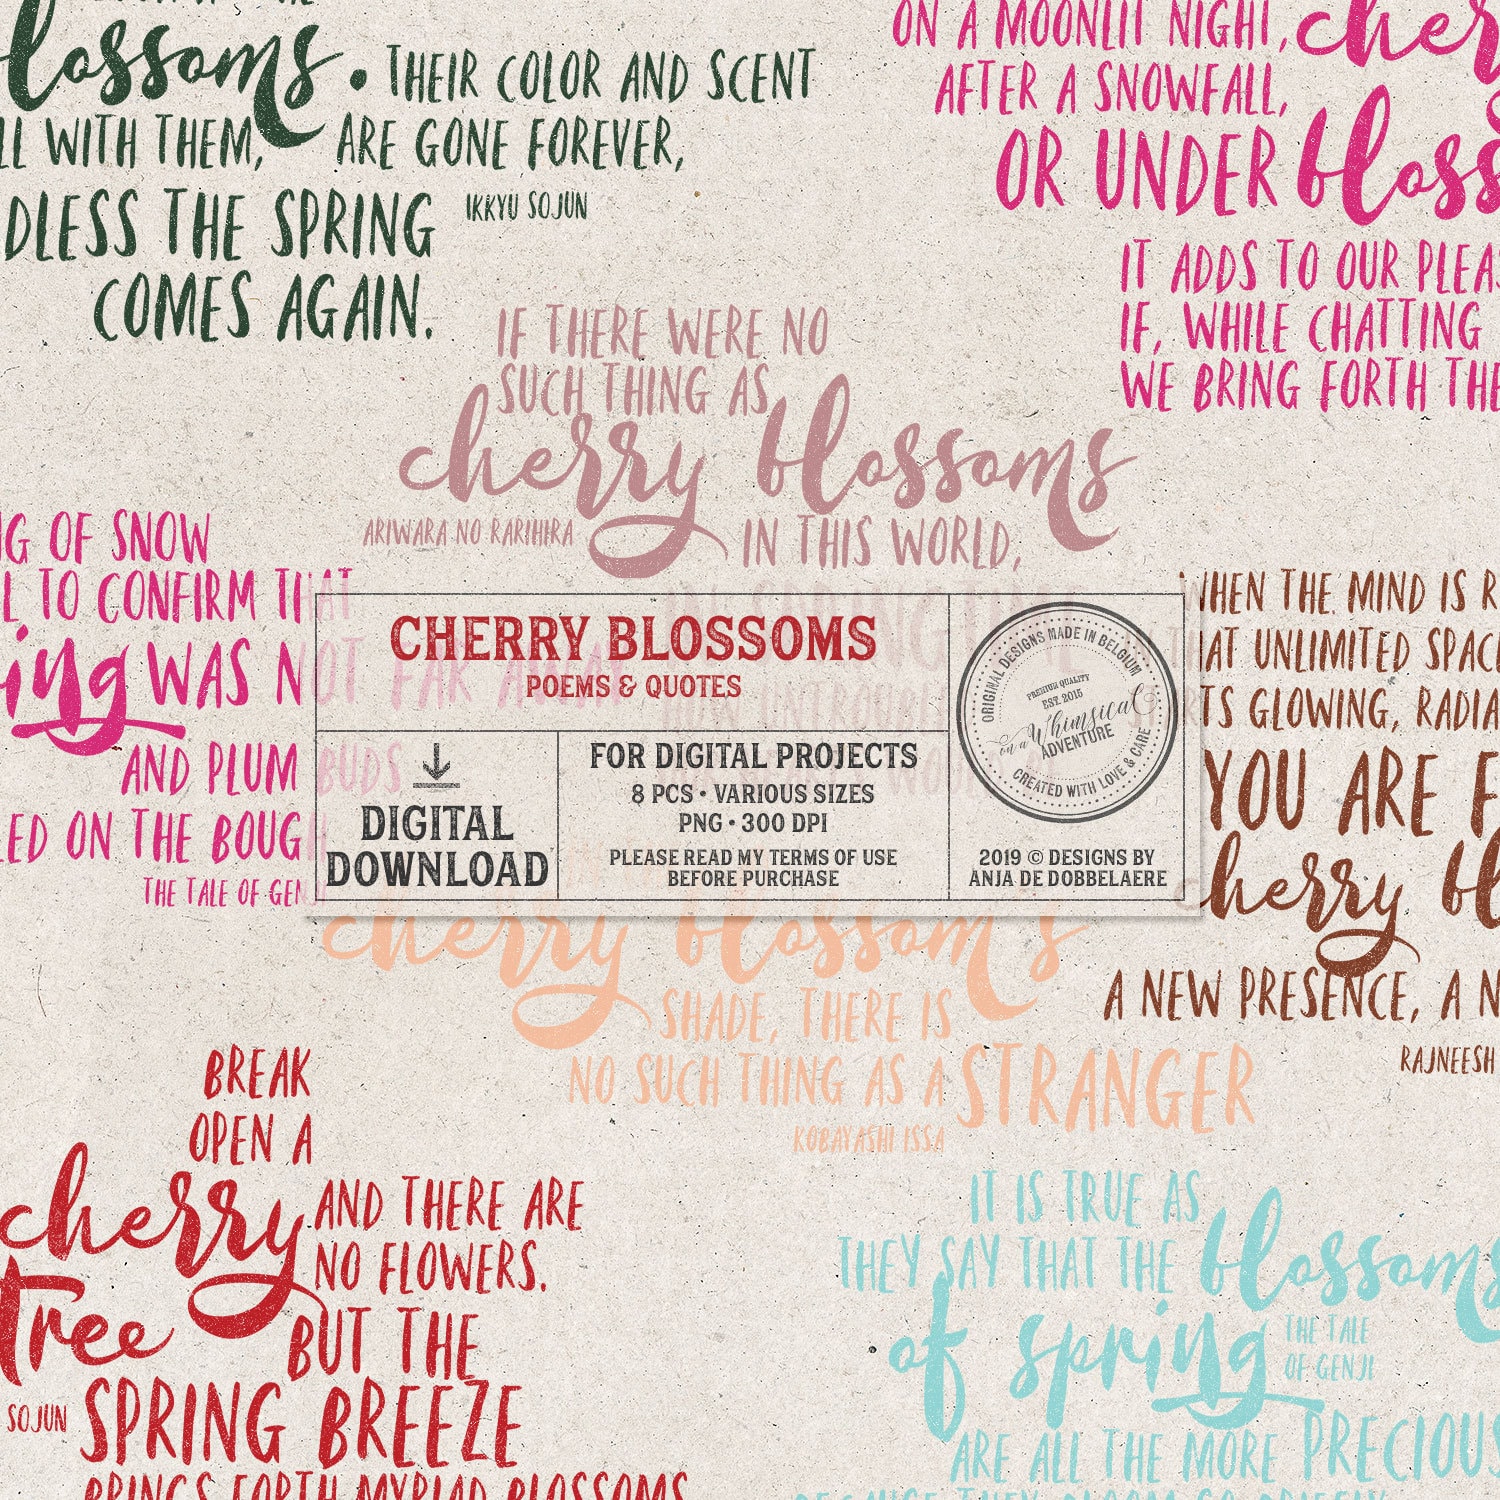 blossoms. THEIR COLOR AND SCENT
WITH THEM, ARE GONE FOREVER,
THE SPRING
IKKYU SOJUN
COMES AGAIN.
ON A MOONLIT NIGHT,
AFTER A SNOWFALL,
OR UNDER
IT ADDS TO OUR
IF, WHILE CHATTING
WE BRING FORTH
IF THERE WERE NO
SUCH THING AS
cherry blossoms
ARIWARA NO RARIHIRA
IN THIS WORLD,
OF SNOW
TO CONFIRM THAT
WAS NOT FAR AWAY
AND PLUM BUDS
ON THE BOUGH
THE TALE OF GENJI
WHEN THE MIND IS
UNLIMITED
GLOWING,
YOU ARE
cherry
A NEW PRESENCE, A
RAJNEESH
CHERRY BLOSSOMS
POEMS & QUOTES
DIGITAL
DOWNLOAD
FOR DIGITAL PROJECTS
8 PCS • VARIOUS SIZES
PNG • 300 DPI
PLEASE READ MY TERMS OF USE
BEFORE PURCHASE
ORIGINAL DESIGNS MADE IN BELGIUM
PREMIUM QUALITY
EST. 2015
on a Whimsical
ADVENTURE
CREATED WITH LOVE & CARE
2019 © DESIGNS BY
ANJA DE DOBBELAERE
cherry blossom's
SHADE, THERE IS
NO SUCH THING AS A STRANGER
KOBAYASHI ISSA
BREAK
OPEN A
cherry AND THERE ARE
NO FLOWERS.
tree BUT THE
SOJUN
SPRING BREEZE
BRINGS FORTH MYRIAD BLOSSOMS
IT IS TRUE AS
THEY SAY THAT THE blossoms
of spring
THE TALE
OF GENJI
ARE ALL THE MORE PRECIOUS
BECAUSE THEY BLOOM SO BRIEFLY